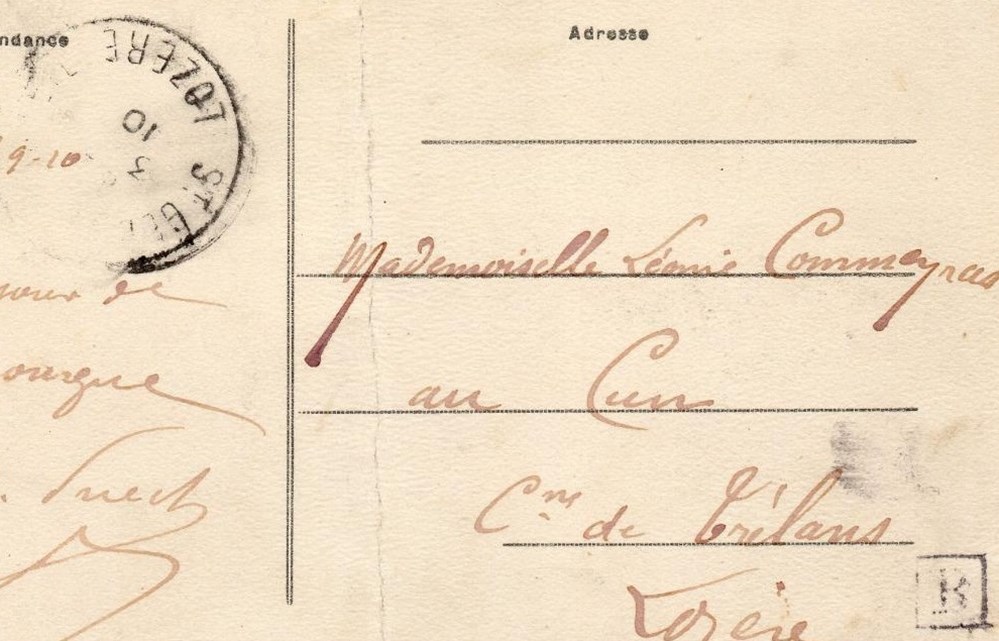 ndance
LOZERE
ST GER
10
3
9-10
jour de
ourgue
Puech
Adresse
Mademoiselle Léonie Commeyras
au Cun
Cne de Trélans
Lozère
K